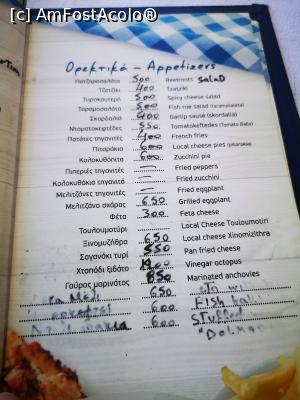 [c] AmFostAcolo®
Ορεκτικά - Appetizers
Πατζαροσαλάτα 500 Beetroots salad
Τζατζίκι 400 Tzatziki
Τυροκαυτερή 500 Spicy cheese salad
Ταραμοσαλάτα 500 Fish roe salad (taramosalata)
Σκορδαλιά 400 Garlip sausé (skordalia)
Ντοματοκεφτέδες 550 Tomatokeftedes (Tomato Balls)
Πατάτες τηγανιτές 400 French fries
Πιταράκια 600 Local cheese pies (pitarakia)
Κολοκυθόπιτα 600 Zucchini pie
Πιπεριές τηγανιτές — Fried peppers
Κολοκυθάκια τηγανιτά — Fried zucchini
Μελιτζάνες τηγανιτές — Fried eggplant
Μελιτζάνα σχάρας 650 Grilled eggplant
Φέτα 300 Feta cheese
Τουλουμοτύρι Local Cheese Touloumotiri
Ξινομυζήθρα 650 Local cheese Xinomizithra
Σαγανάκι τυρί 550 Pan fried cheese
Χταπόδι ξιδάτο Vinegar octopus
Γαύρος μαρινάτος 650 Marinated anchovies
650
600 Fish
600 Stuffed